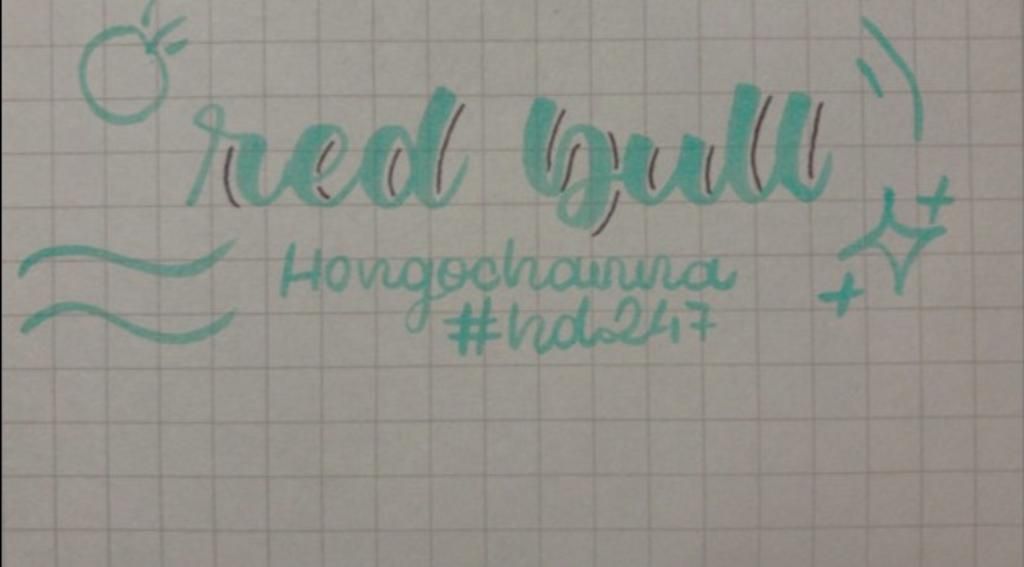 red bull
Hongochanna
#hds247